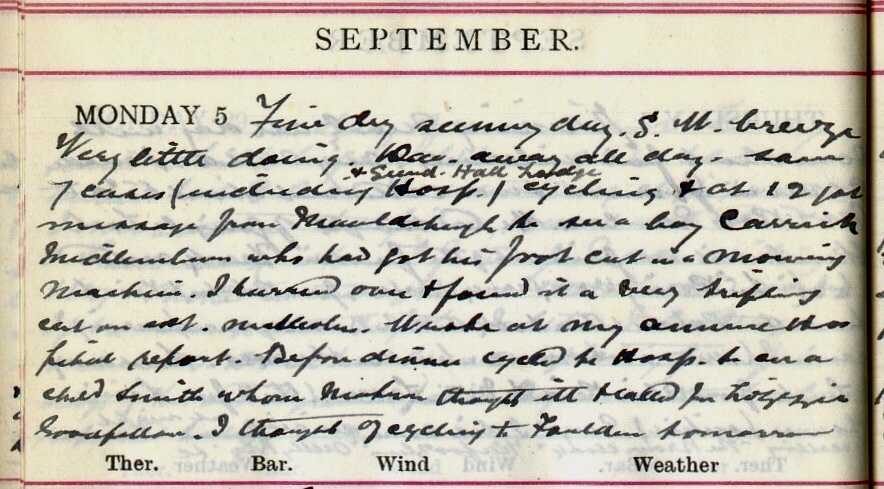 SEPTEMBER.
MONDAY 5 Fine dry sunny day. S. W. breeze
Very little doing. Dav. away all day. Saw
& Sund. Hall Lodge
7 cases (including Hosp.) cycling & at 12 got
message from to see a boy Carrick
who had got his foot cut in a mowing
machine. I hurried over & found it a very trifling
cut on ext. malleolus. Wrote at my annual Hos-
pital report. Before dinner cycled to Hosp. to see a
child Smith whom Matron thought ill & called for Lizzie
Goodfellow. I thought of cycling to Foulden tomorrow
Ther. Bar. Wind Weather